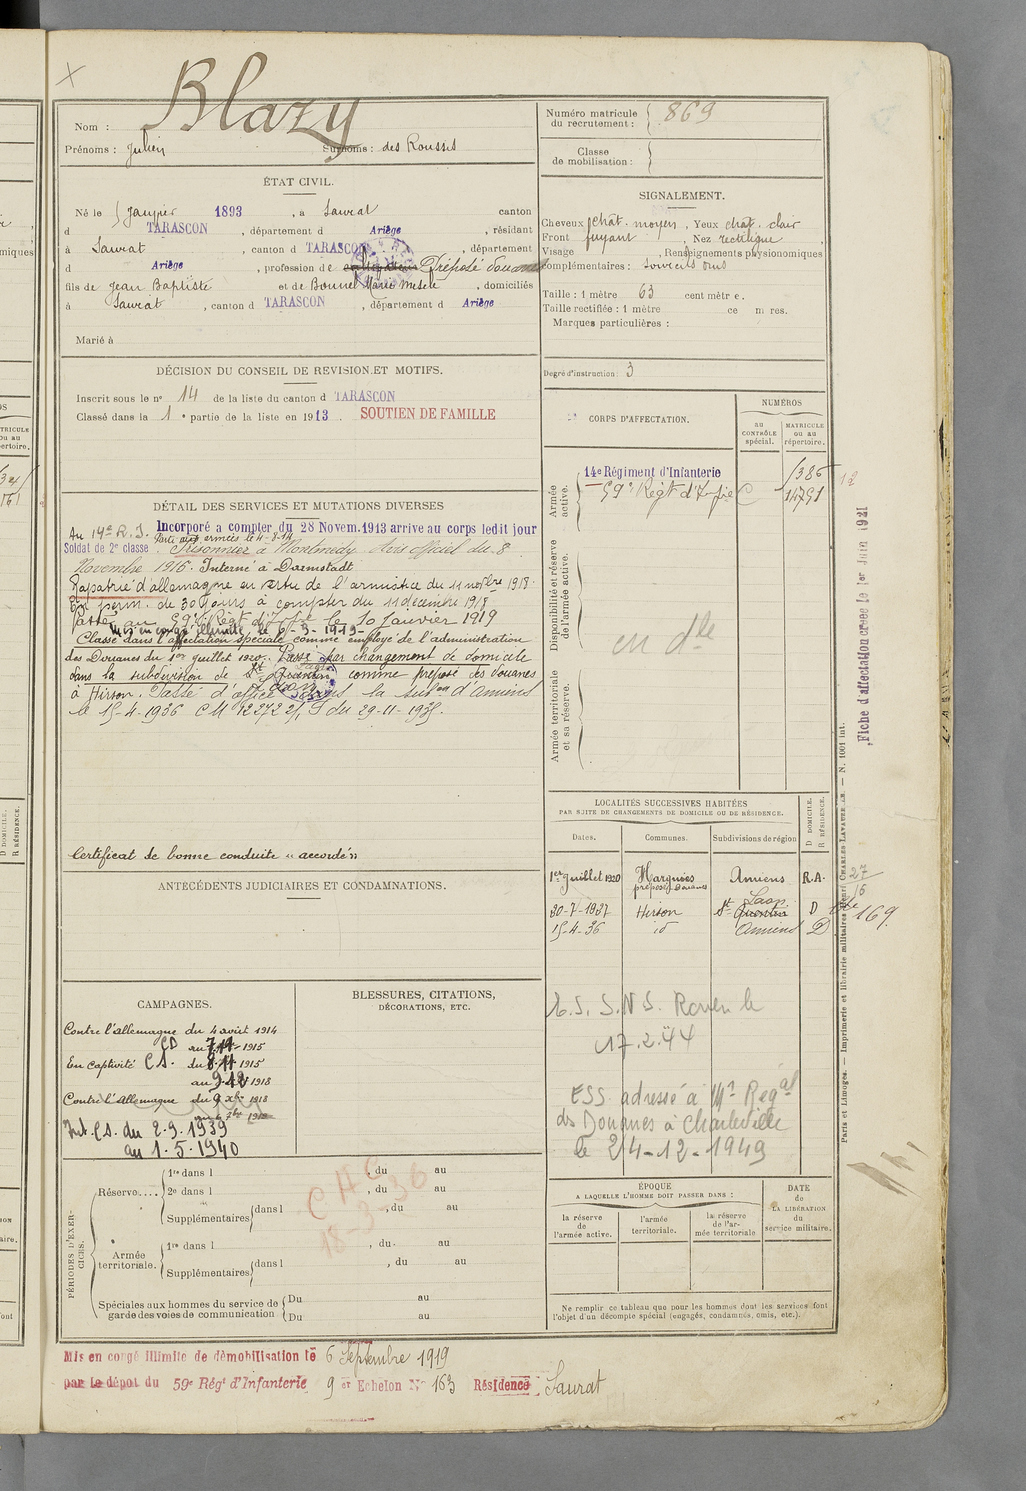 Blazy
Nom :
Prénoms : Julien Surnoms : des Rousses
Numéro matricule du recrutement : 869
Classe de mobilisation :
ÉTAT CIVIL.
Né le 5 Janvier 1893, à Saurat canton
d TARASCON, département d Ariège, résidant
à Saurat, canton d TARASCON, département
d Ariège, profession de cultivateur Préposé douanes
fils de Jean Baptiste et de Bonnel Marie, domiciliés
à Saurat, canton d TARASCON, département d Ariège
Marié à
SIGNALEMENT.
Cheveux chât. moyen, Yeux chât. clair
Front fuyant, Nez rectiligne
Visage , Renseignements physionomiques
complémentaires : sourcils
Taille : 1 mètre 63 centimètres.
Taille rectifiée : 1 mètre
Marques particulières :
Degré d'instruction : 3
DÉCISION DU CONSEIL DE REVISION ET MOTIFS.
Inscrit sous le n° 14 de la liste du canton d TARASCON
Classé dans la 1e partie de la liste en 1913. SOUTIEN DE FAMILLE
CORPS D'AFFECTATION.
NUMÉROS
au CONTRÔLE spécial.
MATRICULE ou au répertoire.
Armée active.
14e Régiment d'Infanterie 1386
59e Régt d'Infie C 14791
Disponibilité et réserve de l'armée active.
en dlle
Armée territoriale et sa réserve.
DÉTAIL DES SERVICES ET MUTATIONS DIVERSES
Au 14e R. I. Incorporé a compter du 28 Novem. 1913 arrive au corps ledit jour
Parti aux armées le 4-8-14
Soldat de 2e classe. Prisonnier à Montmédy Avis officiel du 8
Novembre 1915. Interné à Darmstadt
Rapatrié d'allemagne en vertu de l'armistice du 11 novbre 1918.
En perm. de 30 jours à compter du 11 décembre 1918
Passé au 59e Régt d'Inft le 10 Janvier 1919
Mis en congé illimité le 6-9-1919-
Classé dans l'affectation spéciale comme employé de l'administration
des Douanes du 1er juillet 1920. Passé par changement de domicile
dans la subdivision de St Quentin Laon comme préposé des douanes
à Hirson. Passé d'office dans la subon d'amiens
le 15-4-1936 CM 12272 2/1 S du 29-11-1935.
Certificat de bonne conduite "accordé"
ANTÉCÉDENTS JUDICIAIRES ET CONDAMNATIONS.
LOCALITÉS SUCCESSIVES HABITÉES
PAR SUITE DE CHANGEMENTS DE DOMICILE OU DE RÉSIDENCE.
Dates. Communes. Subdivisions de région D DOMICILE. R RÉSIDENCE.
1er Juillet 1920 Hargnies préposé Douanes Amiens R.A.
30-7-1937 Hirson Laon St Quentin D
15-4-36 id Amiens D
169.
E.S. S.N S. Rouen le
17.2.44
ESS adressé à 14e Régal
des Douanes à Charleville
le 24-12-1949
CAMPAGNES.
Contre l'allemagne du 4 août 1914
CD au 7-11-1915
En captivité CS. du 8-11-1915
au 9-12-1918
Contre l'Allemagne du 9 xbre 1918
Int. CS. du 2-9-1939
au 1-5-1940
BLESSURES, CITATIONS,
DÉCORATIONS, ETC.
PÉRIODES D'EXERCICES.
Réserve....
1re dans l , du au
2e dans l , du au
Supplémentaires dans l , du au
Armée territoriale.
1re dans l , du au
Supplémentaires dans l , du au
Spéciales aux hommes du service de garde des voies de communication
Du au
Du au
CHC
18-3-36
ÉPOQUE
A LAQUELLE L'HOMME DOIT PASSER DANS :
la réserve de l'armée active.
l'armée territoriale.
la réserve de l'armée territoriale
DATE de LA LIBÉRATION du service militaire.
Ne remplir ce tableau que pour les hommes dont les services font
l'objet d'un décompte spécial (engagés, condamnés, omis, etc.).
Mis en congé illimité de démobilisation le 6 Septembre 1919
par le dépôt du 59e Régt d'Infanterie 9 er Echelon N° 163 Résidence Saurat
Fiche d'affectation créée le 1er Juin 1921
Paris et Limoges. — Imprimerie et librairie militaires Henri CHARLES-LAVAUZELLE. — N. 1001 int.